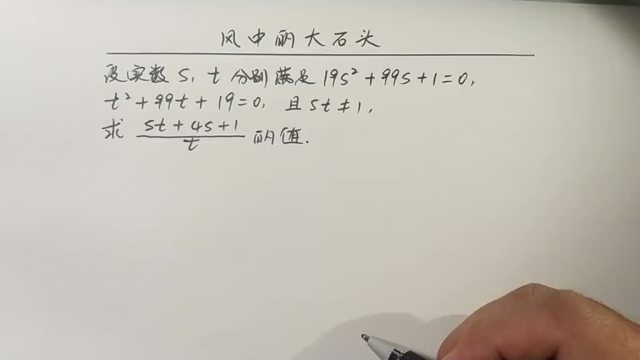 风中的大石头
设实数 s, t 分别满足 19s² + 99s + 1 = 0,
t² + 99t + 19 = 0, 且 st ≠ 1,
求 (st + 4s + 1)/t 的值.